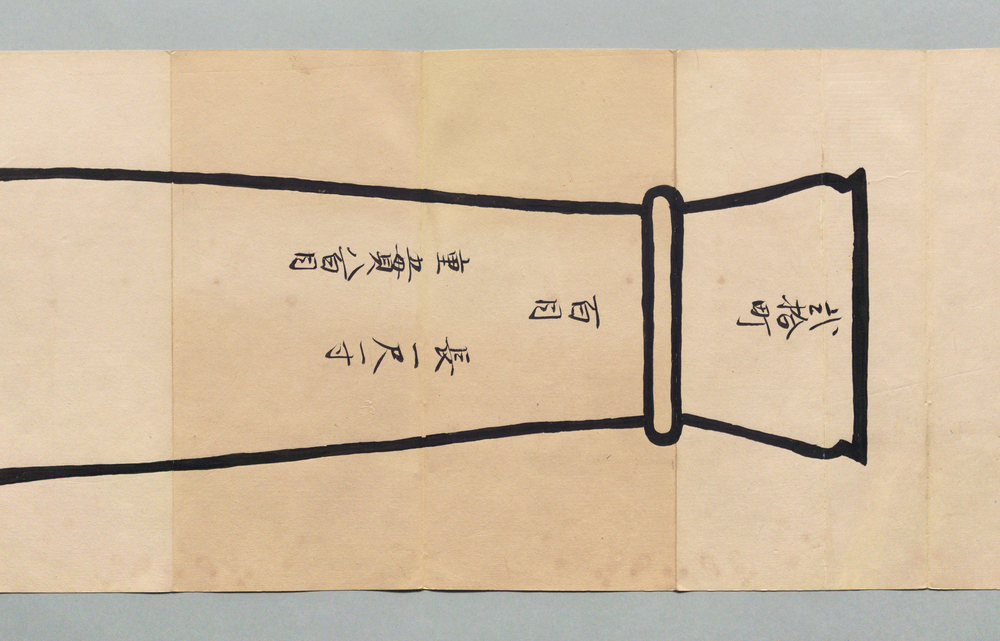 弐拾町
百目
長一尺一寸
重五貫八百目